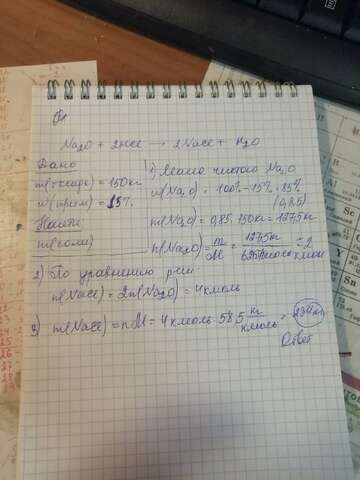 Na2O + 2HCl → 2NaCl + H2O
Дано
m(оксида) = 150 кг
w(прим) = 15%
Найти
m(соли)
1) Масса чистого Na2O
w(Na2O) = 100% - 15% = 85%
(0,85)
m(Na2O) = 0,85 · 150 кг = 127,5 кг
n(Na2O) = m/M = 127,5 кг / 62 кг/кмоль ≈ 2 кмоль
2) По уравнению р-ии
n(NaCl) = 2n(Na2O) = 4 кмоль
3) m(NaCl) = nM = 4 кмоль · 58,5 кг/кмоль = 234 кг
Ответ